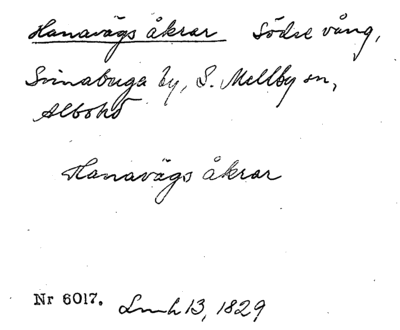 Hanavägs åkrar Södre vång,
Svinaberga by, S. Mellby sn,
Albo hd
Hanavägs åkrar
Nr 6017. Lmh 13, 1829